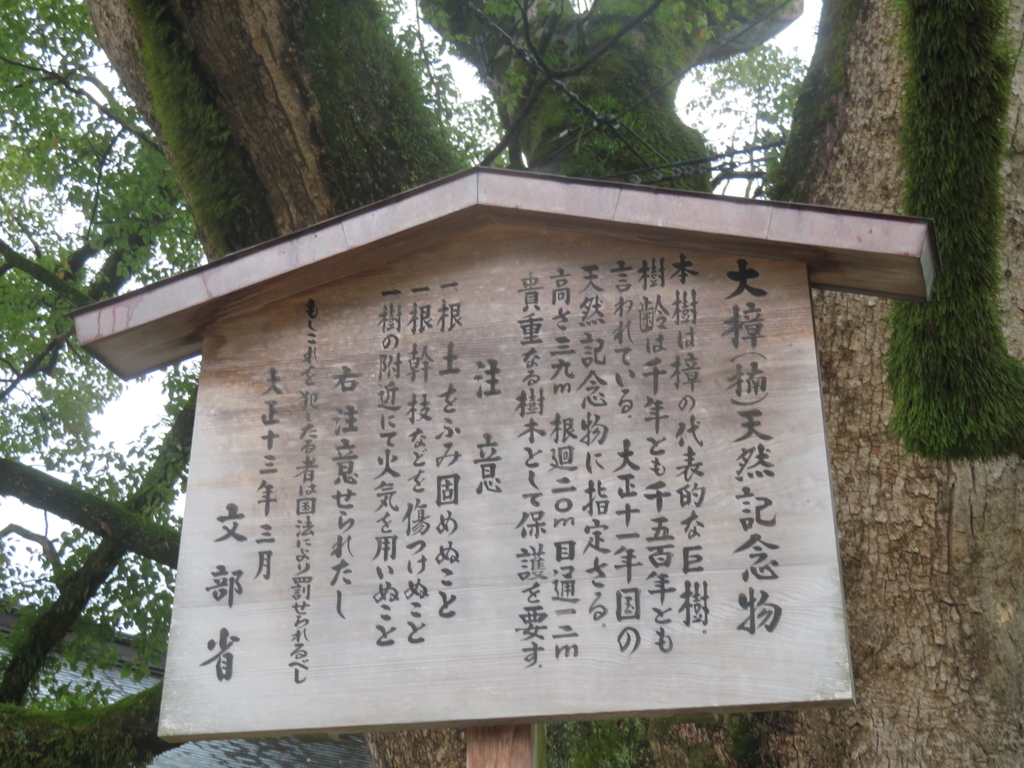 大樟(楠)天然記念物
本樹は樟の代表的な巨樹.
樹齢は千年とも千五百年とも
言われている.大正十一年国の
天然記念物に指定さる.
高さ三九m 根廻二〇m 目通一二m
貴重なる樹木として保護を要す.
注意
一根土をふみ固めぬこと
一根幹枝などを傷つけぬこと
一樹の附近にて火気を用いぬこと
右注意せられたし
もしこれを犯したる者は国法により罰せられるべし
大正十三年三月
文部省